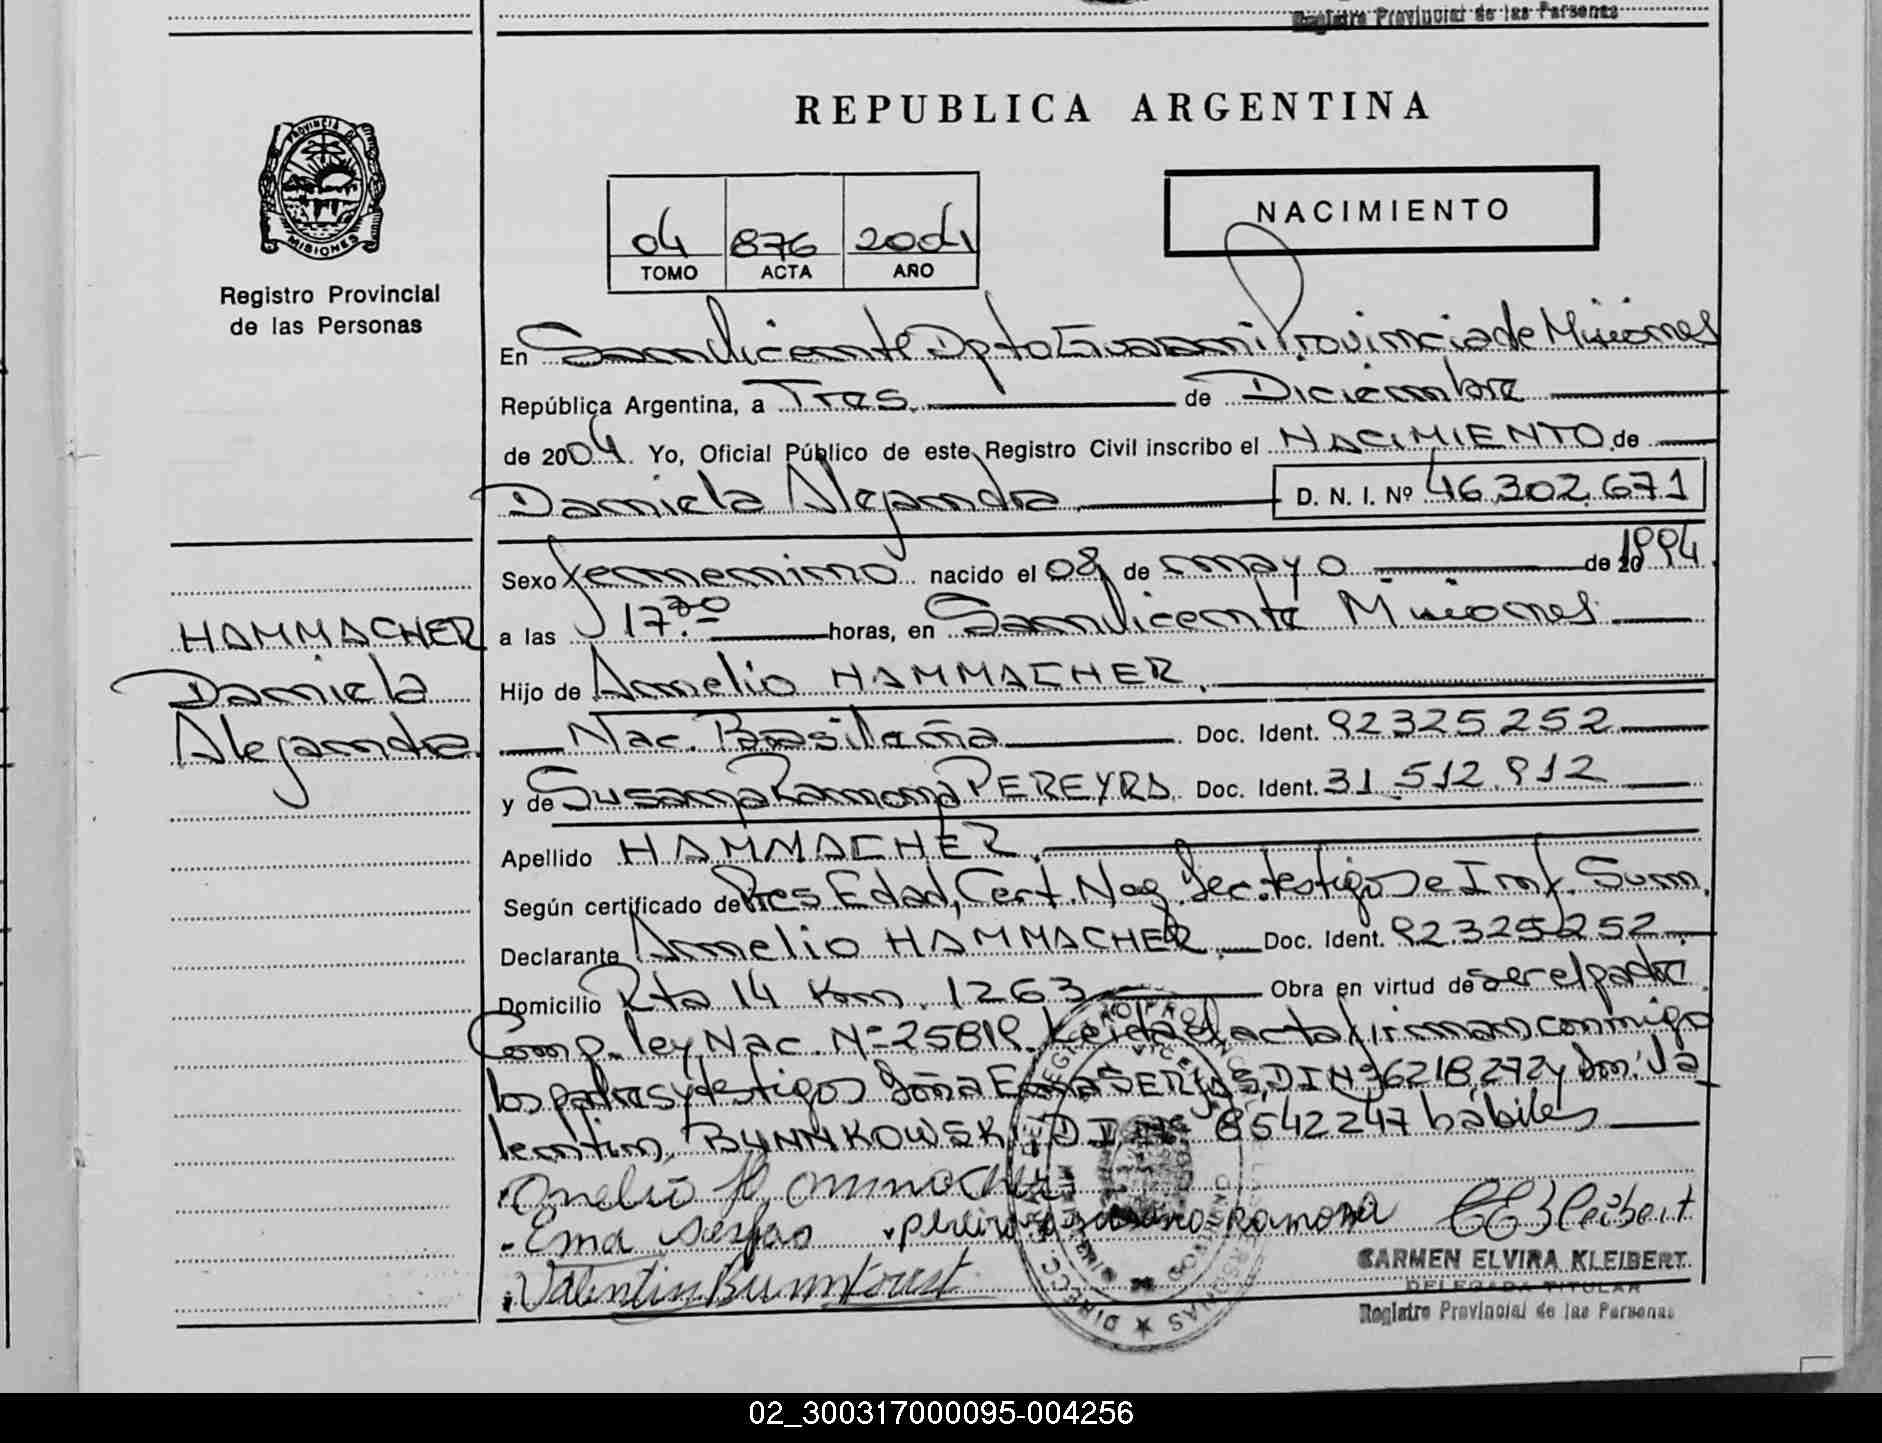 Registro Provincial de las Personas
REPUBLICA ARGENTINA
PROVINCIA DE
MISIONES
Registro Provincial
de las Personas
04 876 2004
TOMO ACTA AÑO
NACIMIENTO
En San Vicente Dpto Guarani Provincia de Misiones
República Argentina, a Tres de Diciembre
de 2004 Yo, Oficial Público de este Registro Civil inscribo el NACIMIENTO de
Daniela Alejandra D. N. I. Nº 46.302.671
Sexo femenino nacido el 08 de mayo de 1994
a las 17 horas, en San Vicente Misiones
HAMMACHER
Daniela
Alejandra
Hijo de Annelio HAMMACHER
Nac. Brasileña Doc. Ident. 92325252
y de Susana Ramona PEREYRA Doc. Ident. 31.512.912
Apellido HAMMACHER
Según certificado de Pres. Edad, Cert. Neg. Dec. testigos De Inf. Sum.
Declarante Annelio HAMMACHER Doc. Ident. 92.325252
Domicilio Rta 14 Km. 1263 Obra en virtud de ser el padre
Comp. ley Nac. Nº 25819. Leida el acta firman conmigo
los padres y testigos Doña Ema SERJAS, DI Nº 6218,272 y Don: Va
lentin BUNNKOWSKI, DI Nº 8542247 hábiles
Ema
Ramona
Valentin
CARMEN ELVIRA KLEIBERT
DELEGADA TITULAR
Registro Provincial de las Personas
02_300317000095-004256